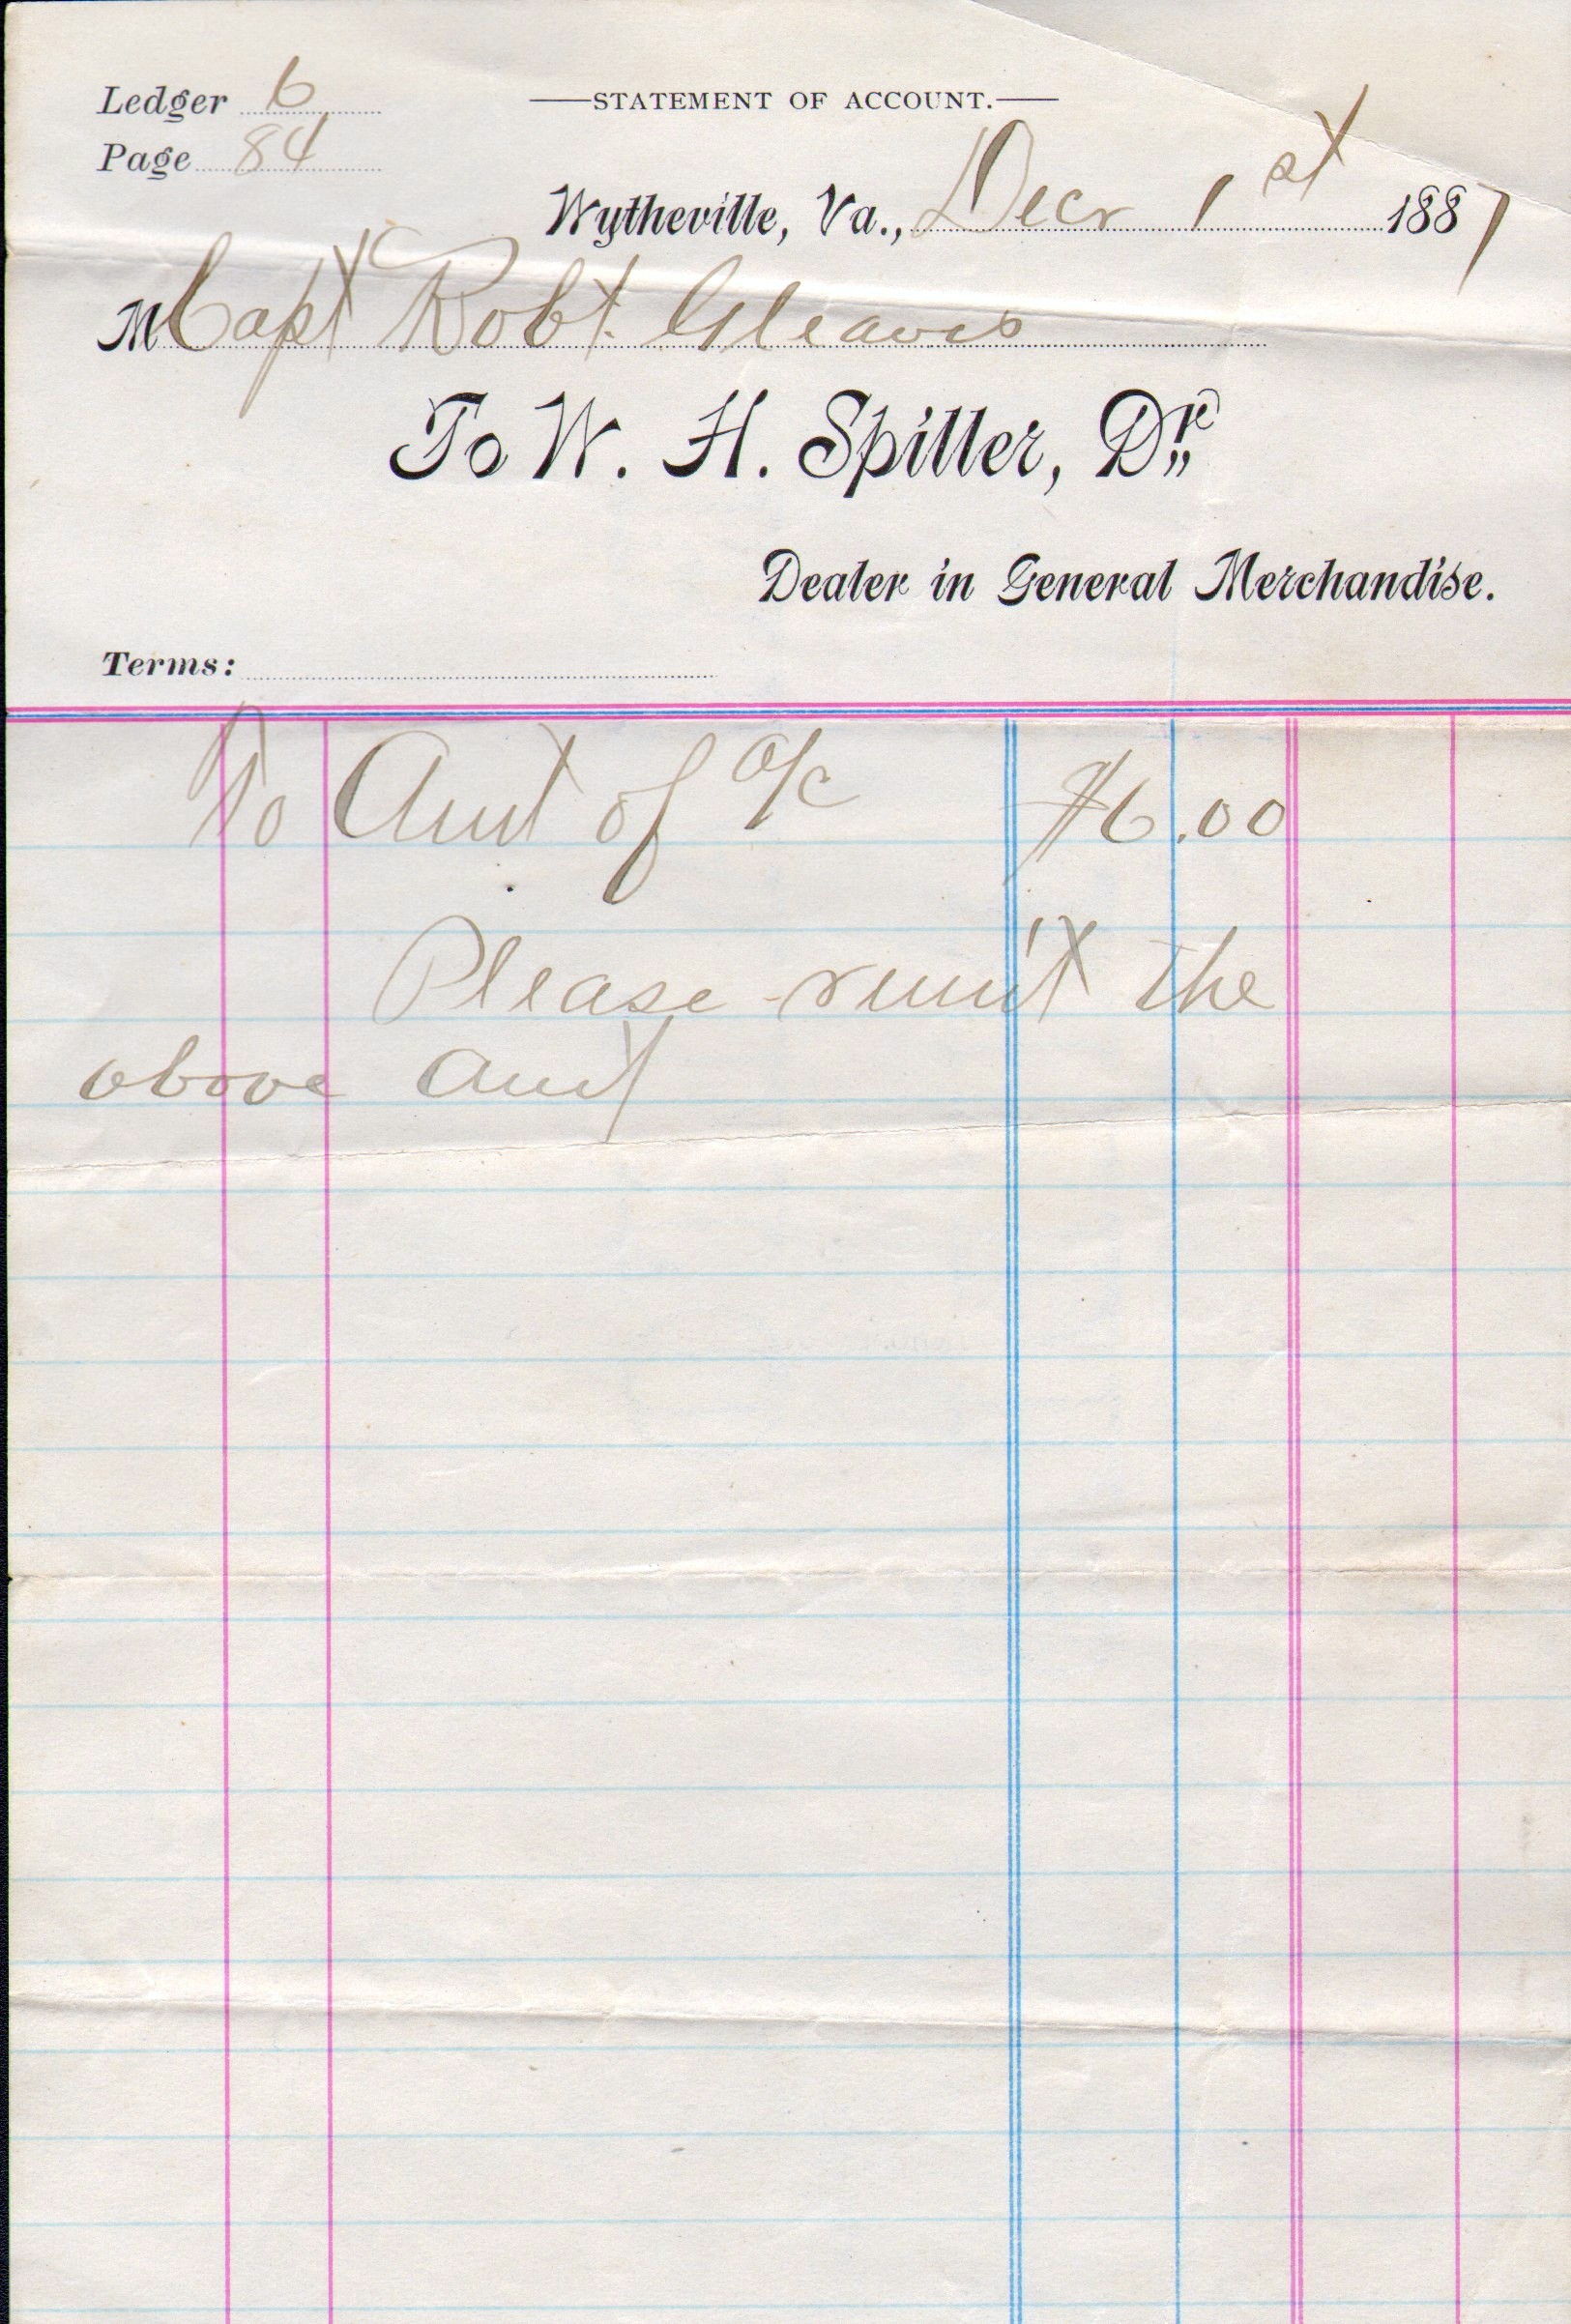 Ledger 6
STATEMENT OF ACCOUNT.
Page 84
Wytheville, Va., Decr 1st 1887
M Capt Robt. Gleaves
To W. H. Spiller, Dr.
Dealer in General Merchandise.
Terms:
To Amt of a/c $6.00
Please remit the
above amt